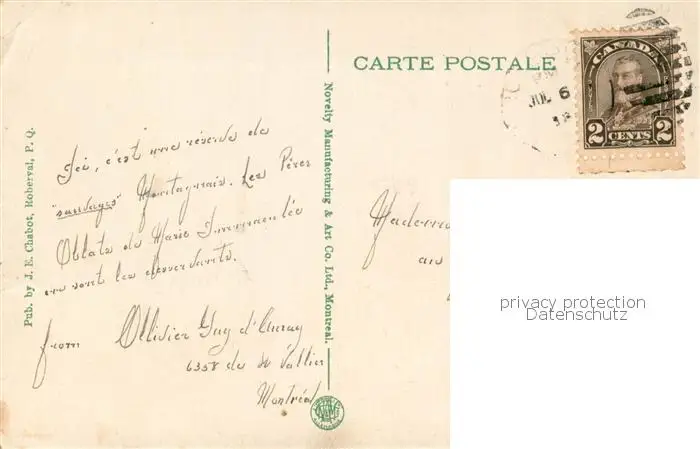 Pub. by J. E. Chabot, Roberval, P. Q.
Ici, c'est une réserve de
"sauvages" Montagnais. Les Pères
Oblats de Marie Immaculée
en sont les desservants.
from Ollivier Guy d'Auray
6358 de St Vallier
Montréal
Novelty Manufacturing & Art Co. Ltd., Montreal.
CARTE POSTALE
PM
JUL 6
CANADA
2 CENTS 2
Mademo
au
privacy protection
Datenschutz